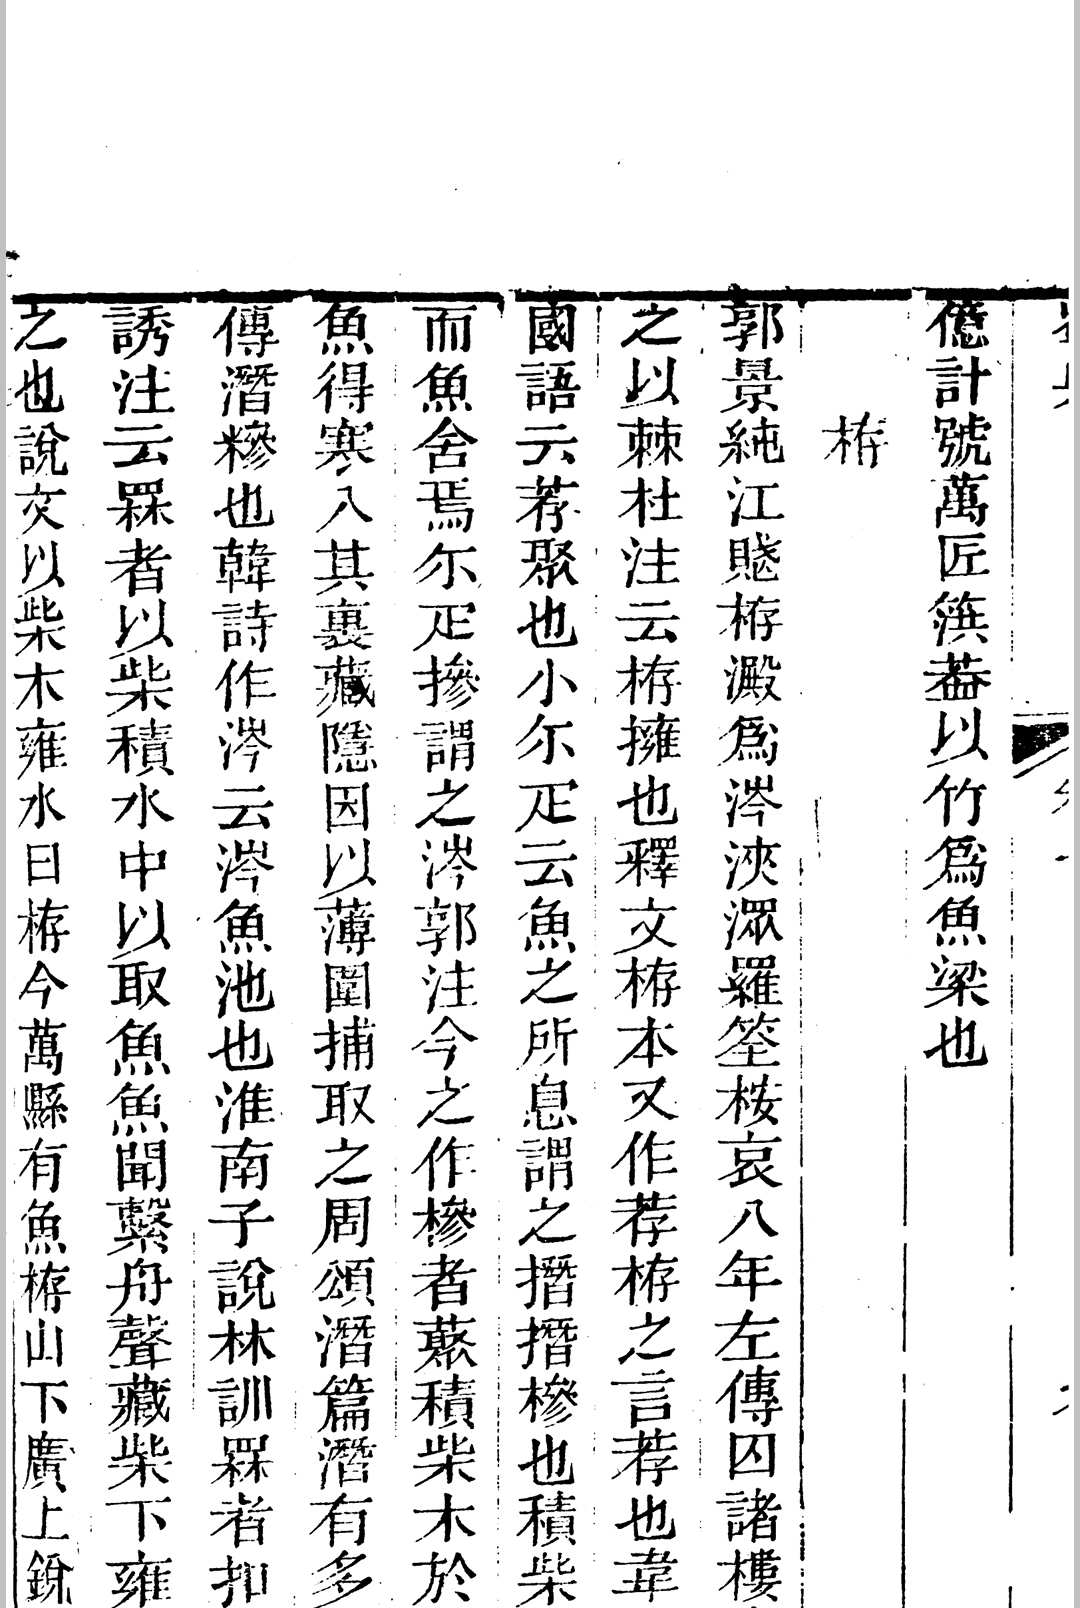 億計號萬匠篊葢以竹爲魚梁也
栫
郭景純江賦栫澱爲涔浹潀羅筌桉哀八年左傳囚諸樓
之以棘杜注云栫擁也釋文栫本又作荐栫之言荐也韋
國語云荐聚也小尒疋云魚之所息謂之㨕㨕槮也積柴
而魚舍焉尒疋摻謂之涔郭注今之作槮者藂積柴木於
魚得寒入其裏藏隱因以薄圍捕取之周頌潛篇潛有多
傳潛糝也韓詩作涔云涔魚池也淮南子說林訓罧者扣
誘注云罧者以柴積水中以取魚魚聞繫舟聲藏柴下雍
之也說文以柴木雍水曰栫今萬縣有魚栫山下廣上銳